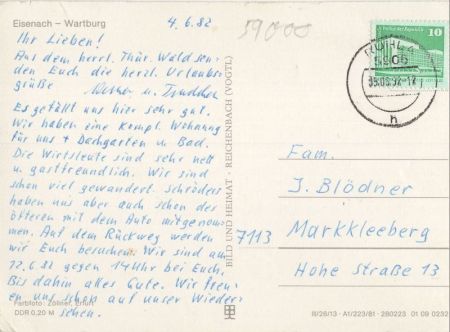 Eisenach – Wartburg
4.6.82
59000
Ihr Lieben!
Aus dem herrl. Thür. Wald sen-
den Euch die herzl. Urlaubs-
grüße
u.
Es gefällt uns hier sehr gut.
Wir haben eine kompl. Wohnung
für uns + Dachgarten u. Bad.
Die Wirtsleute sind sehr nett
u. gastfreundlich. Wir sind
schon viel gewandert. Schröders
haben uns aber auch schon des
öfteren mit dem Auto mitgenom-
men. Auf dem Rückweg werden
wir Euch besuchen. Wir sind am
12.6.82 gegen 14 Uhr bei Euch.
Bis dahin alles Gute. Wir freu-
en uns schon auf unser Wieder-
sehen.
Farbfoto: Zöllner, Erfurt
DDR 0,20 M
BILD UND HEIMAT · REICHENBACH (VOGTL)
10
RUHLA
5906
h
Fam.
J. Blödner
7113 Markkleeberg
Hohe Straße 13
III/26/13 · A1/223/81 · 280223 01 09 0232